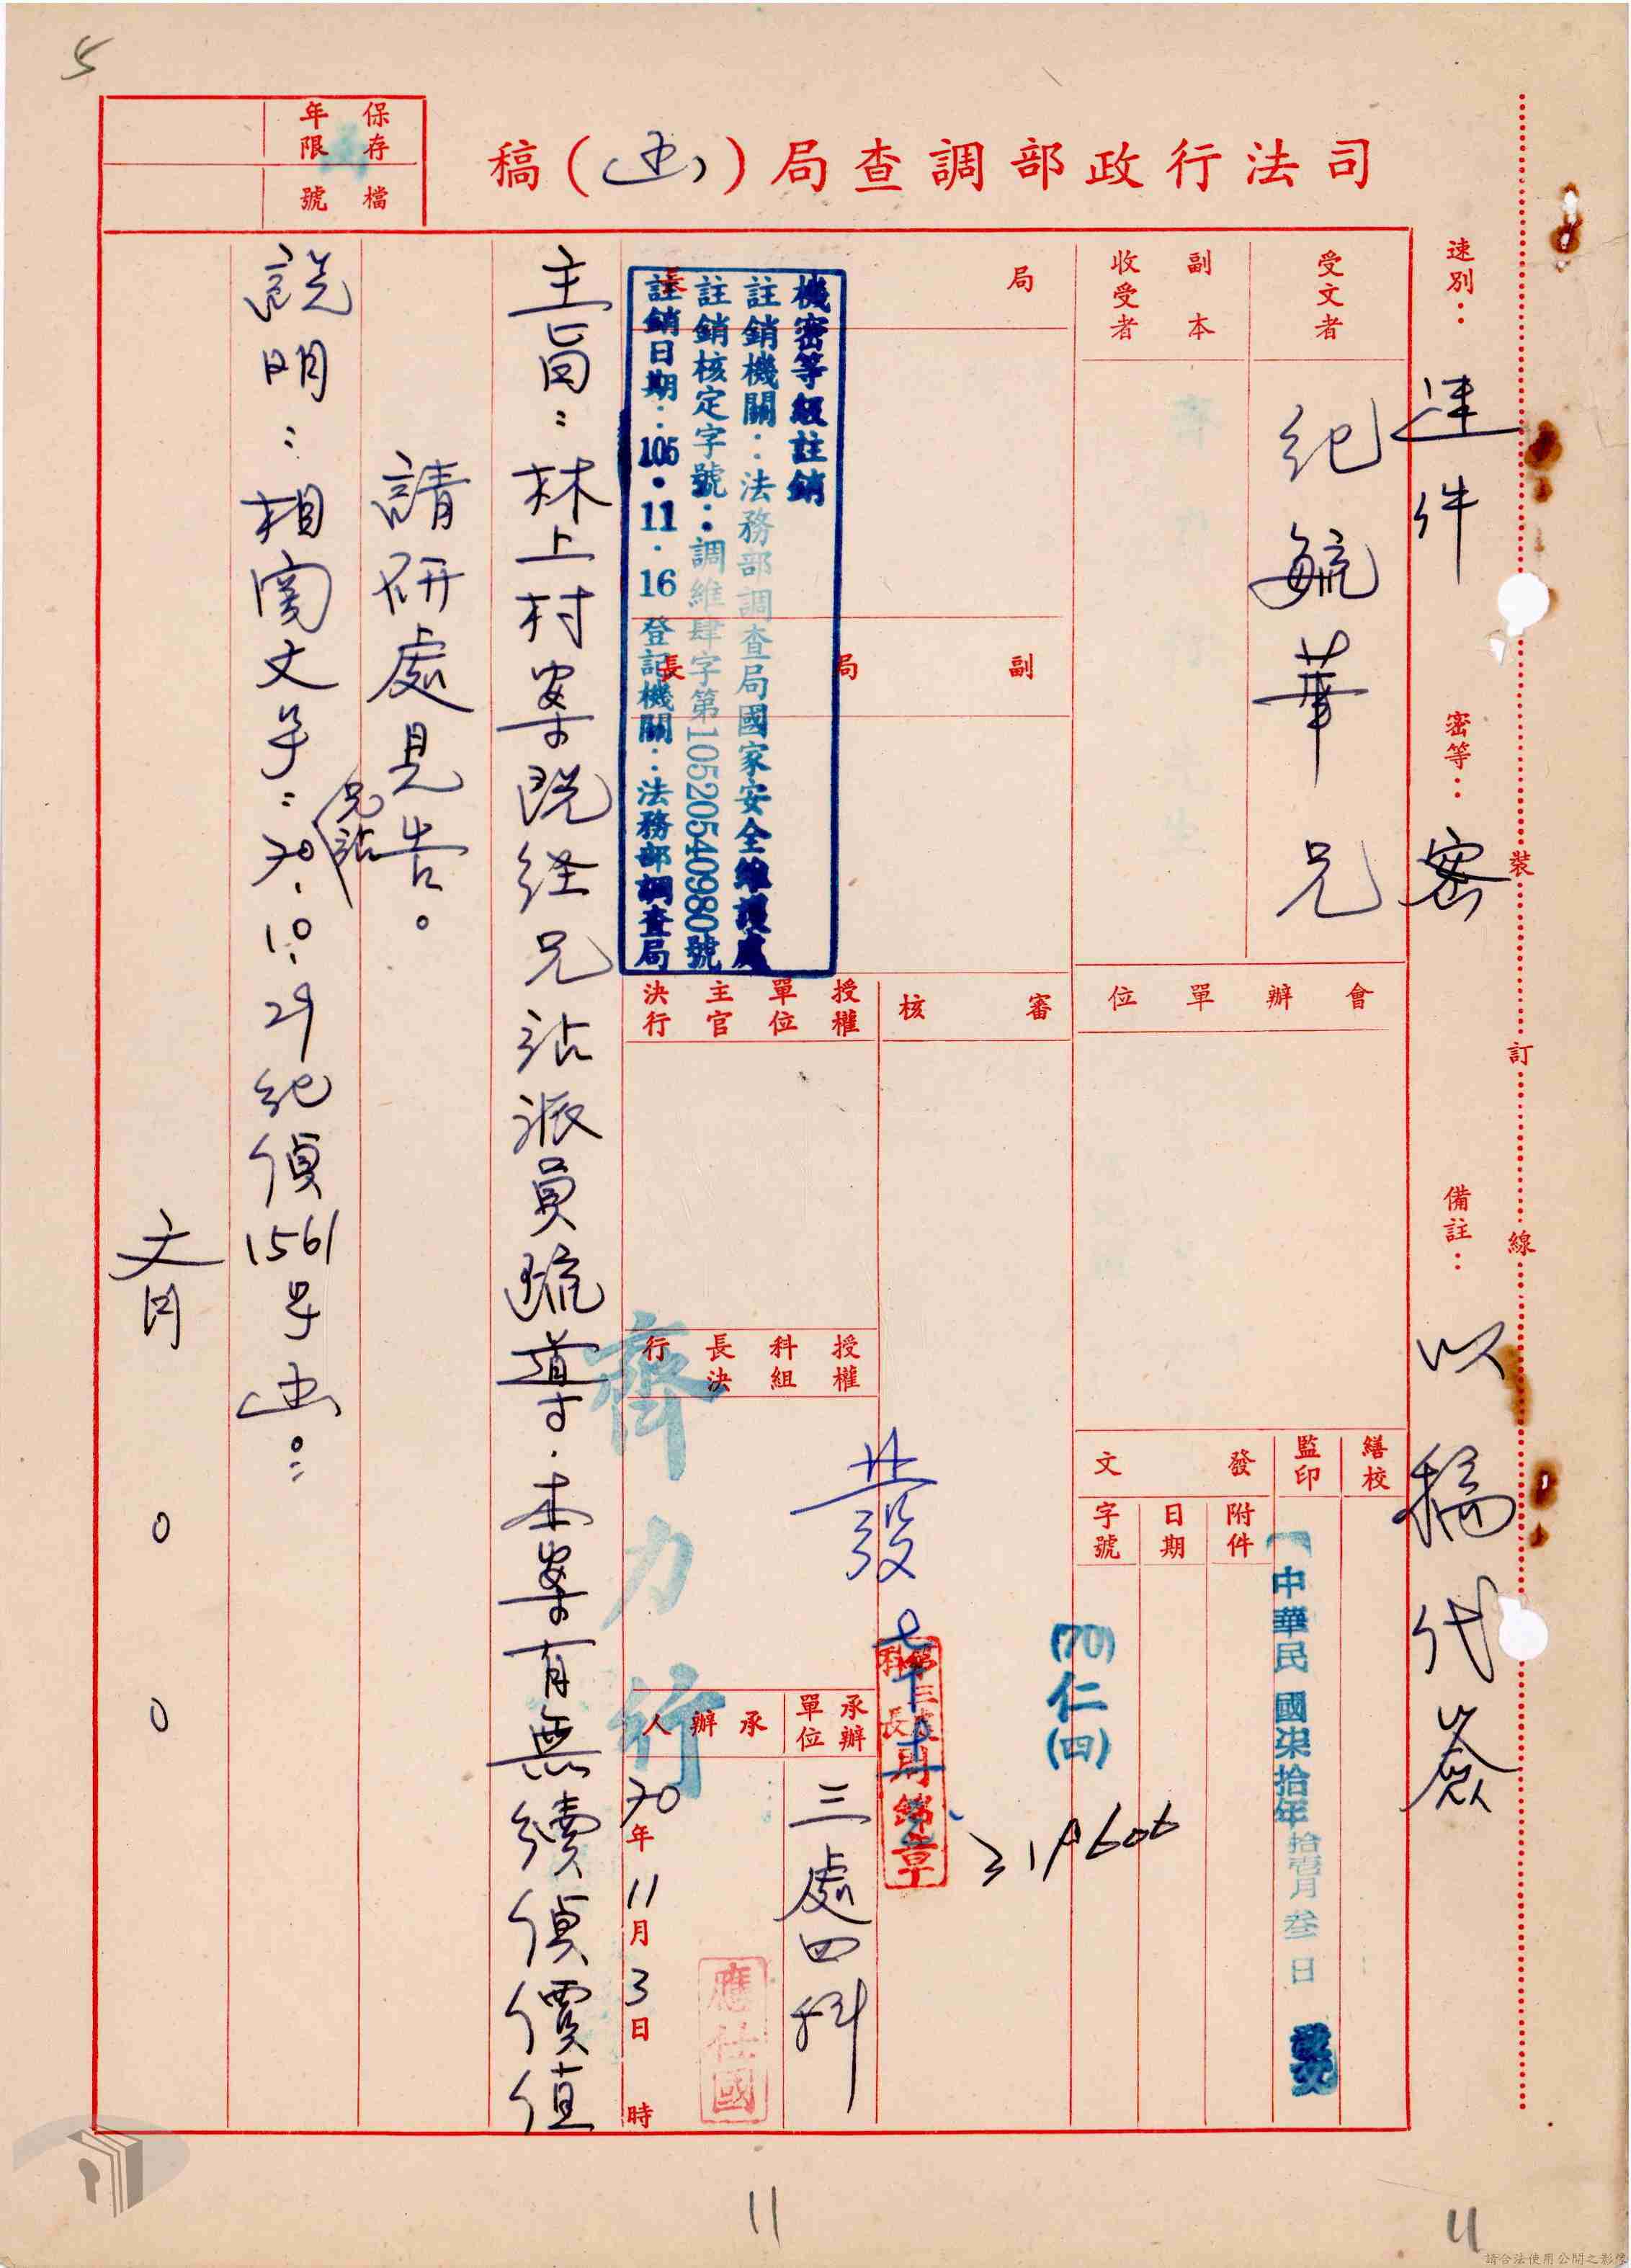 5
司法行政部調查局（函）稿
保存年限
檔號
速別：速件
密等：密
備註：以稿代簽
裝
訂
線
受文者
紀毓華兄
副本
收受者
會辦單位
繕校
監印
中華民國柒拾年拾壹月叁日
發文
發文
附件
日期
字號
(70)仁(四)
319606
局長
副局長
機密等級註銷
註銷機關：法務部調查局國家安全維護處
註銷核定字號：調維肆字第10520540980號
註銷日期：105.11.16登記機關：法務部調查局
審核
授權單位主官決行
授權科組長決行
發
承辦單位
三處四科
承辦人
應仕國
70年11月3日時
齊力行
主旨：林上村案既經兄站派員疏導，本案有無續偵價值
請研處見告。
說明：相關文号：兄站70.10.29紀偵1561号函。
齊〇〇
11
11
請合法使用公開之影像